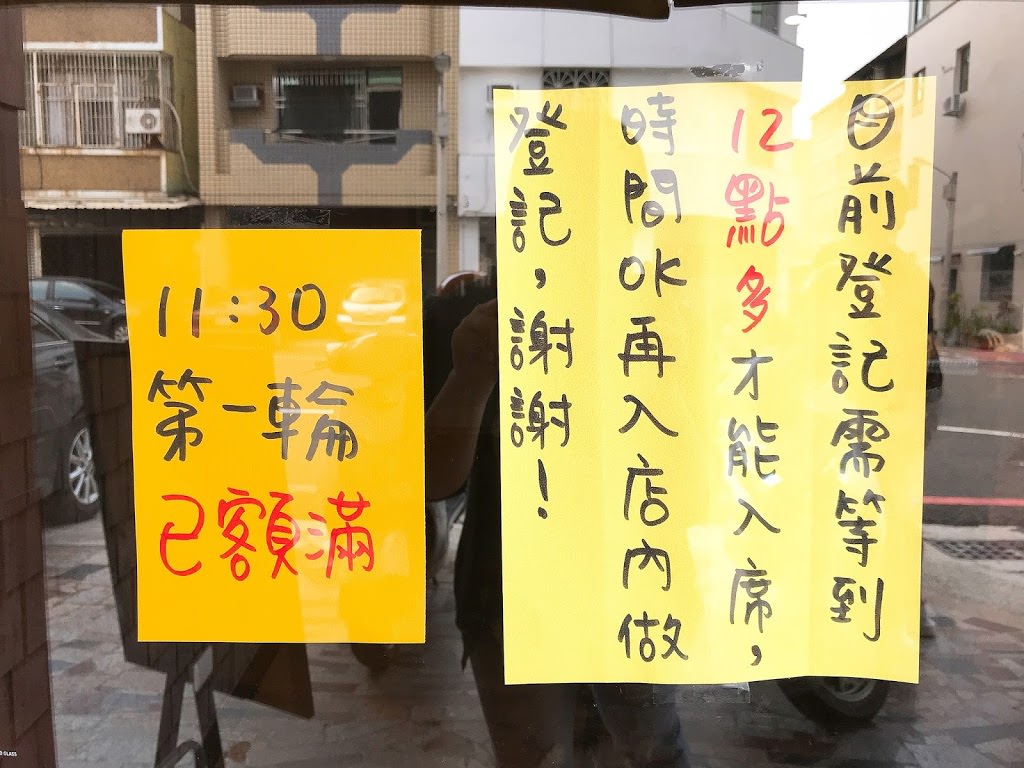 11:30
第一輪
已額滿
目前登記需等到
12點多才能入席,
時間OK再入店內做
登記,謝謝!